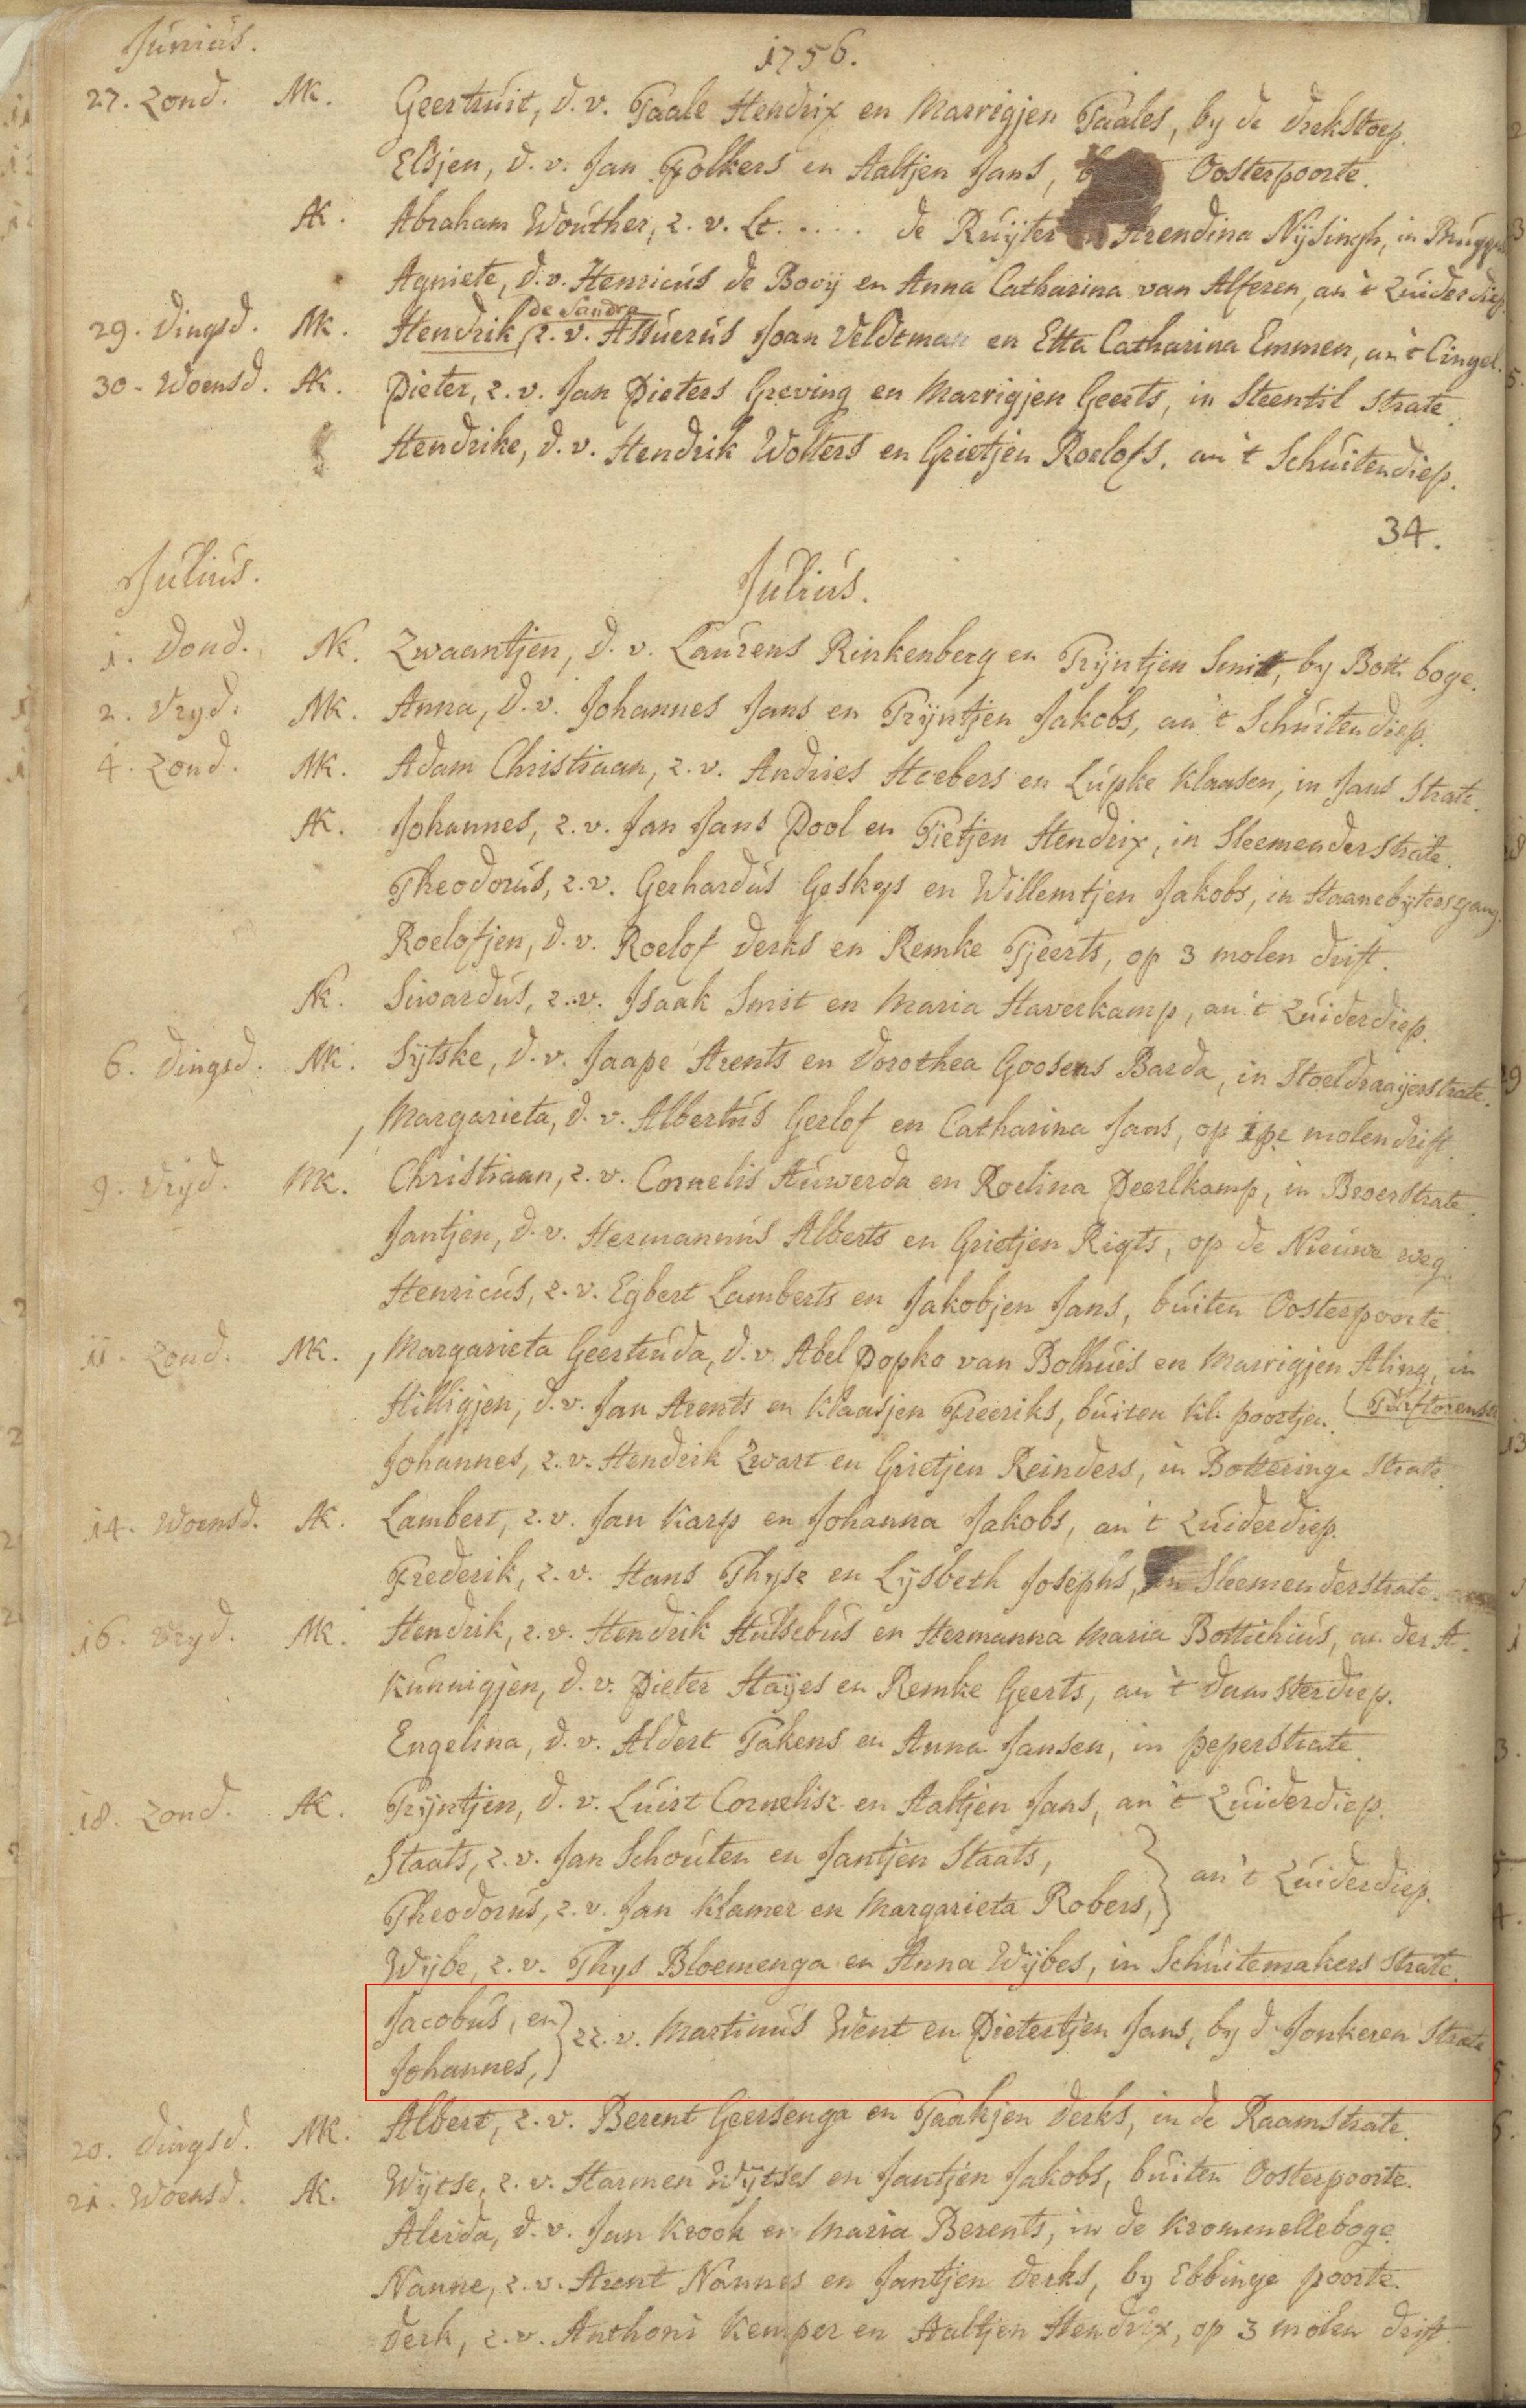 Junius.
1756.
27. Zond. MK. Geertruit, d. v. Taale Hendrix en Marrigjen Taales, by de drekstoep.
Elsjen, d. v. Jan Folkers en Aaltjen Jans, Oosterpoorte.
AK. Abraham Wouther, z. v. Lt. . . . . . de Ruijter en Arendina Nijsingh, in Brugge
Agniete, d. v. Henricus de Booij en Anna Catharina van Alferen, an 't Zuiderdiep
de Sandra
29. Dingsd. MK. Hendrik, z. v. Assuerus Joan Veldtman en Etta Catharina Emmen, an 't Cingel.
30. Woensd. AK. Pieter, z. v. Jan Pieters Greving en Marrigjen Geerts, in Steentil strate.
Hendrike, d. v. Hendrik Wolters en Grietjen Roelofs, an 't Schuitendiep.
34.
Julius. Julius.
1. Dond. NK. Zwaantjen, d. v. Laurens Rinkenberg en Trijntjen Smitt, by Bott. boge.
2. Vryd. MK. Anna, d. v. Johannes Jans en Trijntjen Jakobs, an 't Schuitendiep.
4. Zond. MK. Adam Christiaan, z. v. Andries Hoebers en Lupke Klaasen, in Jans Strate.
AK. Johannes, z. v. Jan Jans Pool en Tietjen Hendrix, in Sleemenderstrate.
Theodorus, z. v. Gerhardus Geskes en Willemtjen Jakobs, in Haanebytersgang.
Roelofjen, d. v. Roelof Derks en Remke Tjeerts, op 3 molen drift.
NK. Siwardus, z. v. Isaak Smit en Maria Haverkamp, an 't Zuiderdiep.
6. Dingsd. MK. Sijtske, d. v. Jaape Arents en Dorothea Goosens Barda, in Stoeldraaijerstrate.
Margarieta, d. v. Albertus Gerlof en Catharina Jans, op molendrift.
9. Vrijd. MK. Christiaan, z. v. Cornelis Auwerda en Roelina Peerlkamp, in Broerstrate.
Jantjen, d. v. Hermannus Alberts en Grietjen Rigts, op de Nieuwe weg.
Henricus, z. v. Egbert Lamberts en Jakobjen Jans, buiten Oosterpoorte.
11. Zond. MK. Margarieta Geertruda, d. v. Abel Popko van Bolhuis en Marrigjen Aling, in
Hilligjen, d. v. Jan Arents en Klaasjen Freeriks, buiten Kl. poortjen. (Turftorenstr
Johannes, z. v. Hendrik Zwart en Grietjen Reinders, in Botteringe Strate.
14. Woensd. AK. Lambert, z. v. Jan Karp en Johanna Jakobs, an 't Zuiderdiep.
Frederik, z. v. Hans Thysz en Lysbeth Josephs, in Sleemenderstrate.
16. Vryd. MK. Hendrik, z. v. Hendrik Hulsebus en Hermanna Maria Bottichius, an der A.
Kunnigjen, d. v. Pieter Haijes en Remke Geerts, an 't Damsterdiep.
Engelina, d. v. Aldert Takens en Anna Jansen, in peperstrate.
18. Zond. AK. Trijntjen, d. v. Luirt Cornelisz en Aaltjen Jans, an 't Zuiderdiep.
Staats, z. v. Jan Schouten en Jantjen Staats, } an 't Zuiderdiep.
Theodorus, z. v. Jan Klamer en Margarieta Robers, }
Wijbe, z. v. Thijs Bloemenga en Anna Wijbes, in Schuitemakers Strate.
Jacobus, en } zz. v. Martinus Went en Pietertjen Jans, by d Jonkeren Strate
Johannes, }
20. Dingsd. MK. Albert, z. v. Berent Geersenga en Taakjen Derks, in de Raamstrate.
21. Woensd. AK. Wijtse, z. v. Harmen Wijtses en Jantjen Jakobs, buiten Oosterpoorte.
Aleida, d. v. Jan Krook en Maria Berents, in de Krommelleboge.
Nanne, z. v. Arent Nannes en Jantjen Derks, by Ebbinge poorte.
Derk, z. v. Anthoni Kemper en Aaltjen Hendrix, op 3 molen drift.